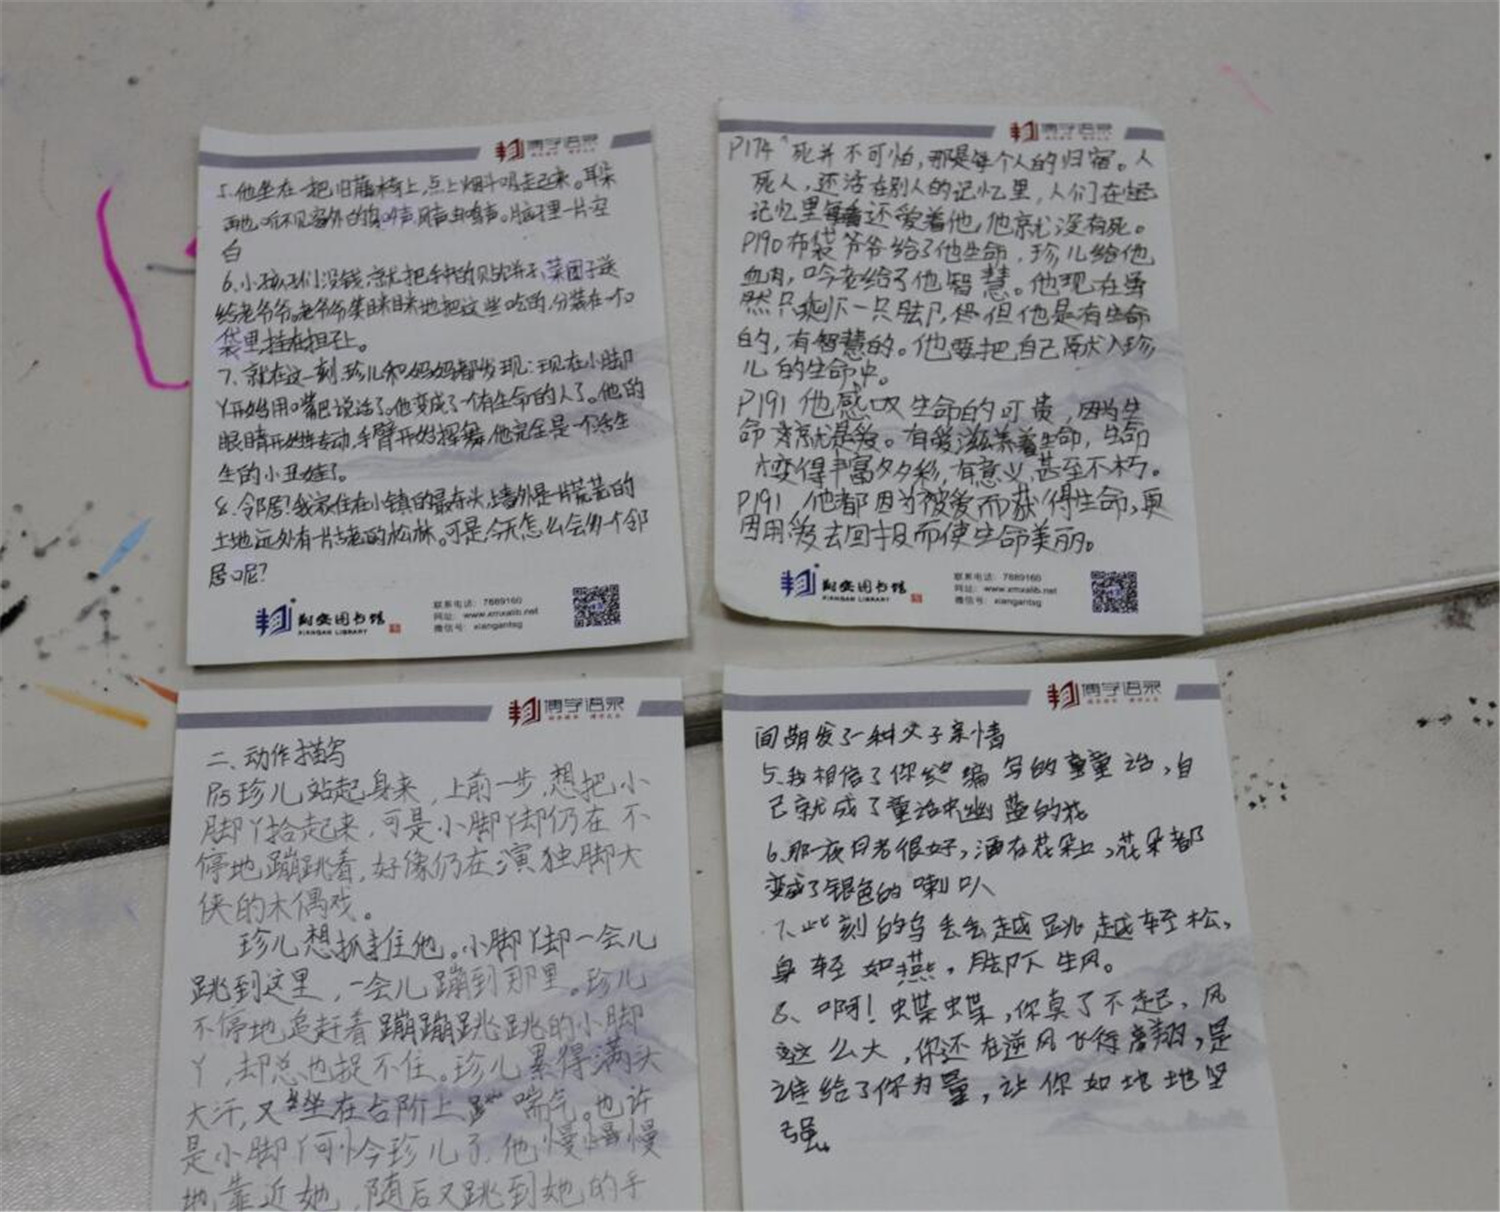 博学语录
5.他坐在一把旧藤椅上,点上烟斗吸起来。耳朵
再也听不见窗外的鸟鸣声风声虫鸣声。脑子里一片空
白
6.小孩子们没钱,就把手中的贴饼子,菜团子送
给老爷爷。老爷爷笑眯眯地把这些吃的,分装在一个
袋里挂在担子上。
7、就在这一刻,珍儿和妈妈都发现:现在小脚
丫开始用嘴巴说话了。他变成了一个有生命的人了。他的
眼睛开始转动,手臂开始挥舞,他完全是一个活生
生的小丑娃了。
8.邻居!我家住在小镇的最东头,墙外是一片荒芜的
土地远处有一片古老的松林。可是,今天怎么会多个邻
居呢?
翔安图书馆
XIANGAN LIBRARY
联系电话:7889160
网址:www.xmxalib.net
微信号:xiangantsg
博学语录
P174 "死并不可怕,那是每个人的归宿。人
死人,还活在别人的记忆里,人们在
记忆里还爱着他,他就没有死。
P190布袋爷爷给了他生命,珍儿给他
血肉,吟老给了他智慧。他现在虽
然只剩下一只脚,但他是有生命
的,有智慧的。他要把自己献入珍
儿的生命中。
P191 他感叹生命的可贵,因为生
命就是爱。有爱滋养着生命,生命
才变得丰富多彩,有意义,甚至不朽。
P191 他都因为被爱而获得生命,更
因用爱去回报而使生命美丽。
翔安图书馆
XIANGAN LIBRARY
联系电话:7889160
网址:www.xmxalib.net
微信号:xiangantsg
博学语录
二、动作描写
P5珍儿站起身来,上前一步,想把小
脚丫拾起来,可是小脚丫却仍在不
停地蹦跳着,好像仍在演独脚大
侠的木偶戏。
珍儿想抓住他。小脚丫却一会儿
跳到这里,一会儿蹦到那里。珍儿
不停地追赶着蹦蹦跳跳的小脚
丫,却总也捉不住。珍儿累得满头
大汗,又坐在台阶上喘气。也许
是小脚丫可怜珍儿了,他慢慢
地靠近她,随后又跳到她的手
博学语录
间萌发了一种父子亲情
5、我相信了你编写的童话,自
己就成了童话中幽蓝的花
6、那一夜月光很好,洒在花朵上,花朵都
变成了银色的喇叭
7、此刻的乌丢丢越跳越轻松,
身轻如燕,脚下生风。
8、啊!蝴蝶,你真了不起,风
这么大,你还在逆风飞得高翔,是
谁给了你力量,让你如此地坚
强。